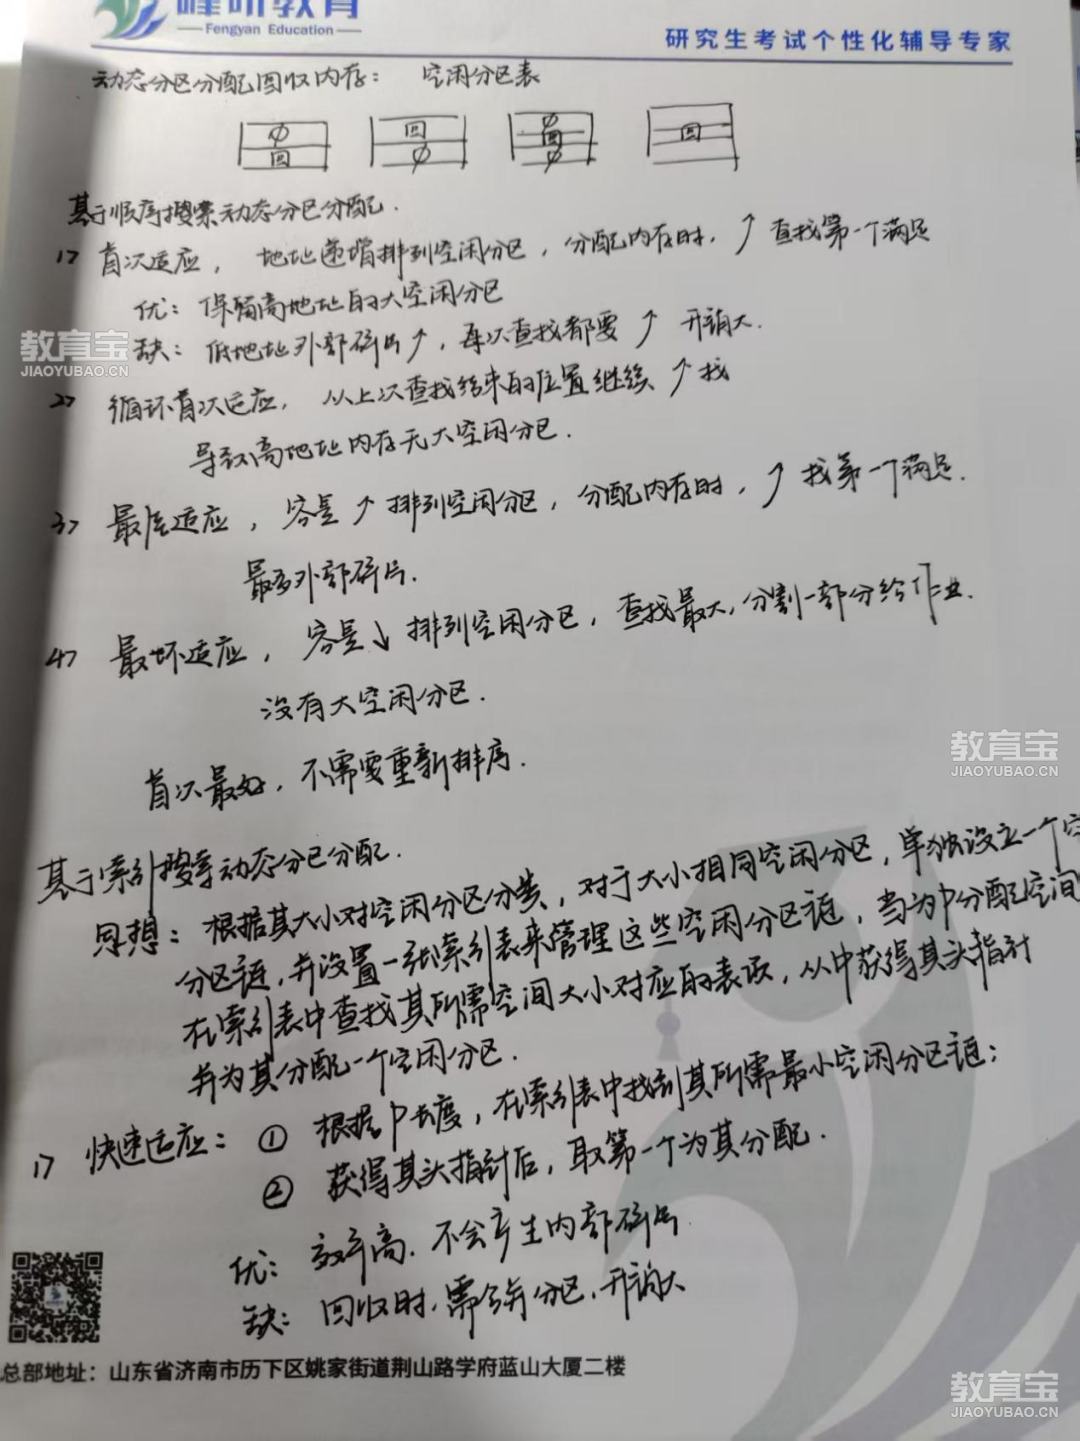 峰研教育
Fengyan Education
研究生考试个性化辅导专家
动态分区分配回收内存: 空闲分区表
φ 回 回 φ φ 回 φ 回
基于顺序搜索动态分区分配.
1> 首次适应, 地址递增排列空闲分区, 分配内存时, ↑ 查找第一个满足
优: 保留高地址的大空闲分区
缺: 低地址外部碎片↑, 每次查找都要 ↑ 开销大.
2> 循环首次适应, 从上次查找结束的位置继续 ↑ 找
导致高地址内存无大空闲分区.
3> 最佳适应, 容量 ↑ 排列空闲分区, 分配内存时, ↑ 找第一个满足.
最多外部碎片.
4> 最坏适应, 容量↓ 排列空闲分区, 查找最大, 分割一部分给作业.
没有大空闲分区.
首次最好, 不需要重新排序.
基于索引搜索动态分区分配.
思想: 根据其大小对空闲分区分类, 对于大小相同空闲分区, 单独设立一个空
分区链, 并设置一张索引表来管理这些空闲分区链, 当为P分配空间
在索引表中查找其所需空间大小对应的表项, 从中获得其头指针
并为其分配一个空闲分区.
1> 快速适应: ① 根据P长度, 在索引表中找到其所需最小空闲分区链;
② 获得其头指针后, 取第一个为其分配.
优: 效率高. 不会产生内部碎片
缺: 回收时, 需合并分区, 开销大
总部地址: 山东省济南市历下区姚家街道荆山路学府蓝山大厦二楼
教育宝
JIAOYUBAO.CN
教育宝
JIAOYUBAO.CN
教育宝
JIAOYUBAO.CN